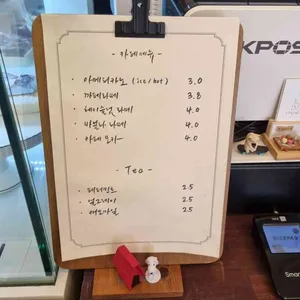 - 카페메뉴 -
· 아메리카노 (ice/hot) 3.0
· 카페라떼 3.8
· 헤이즐넛 라떼 4.0
· 바닐라 라떼 4.0
· 카페 모카 4.0
- Tea -
· 페퍼민트 2.5
· 얼그레이 2.5
· 캐모마일 2.5
KPOS